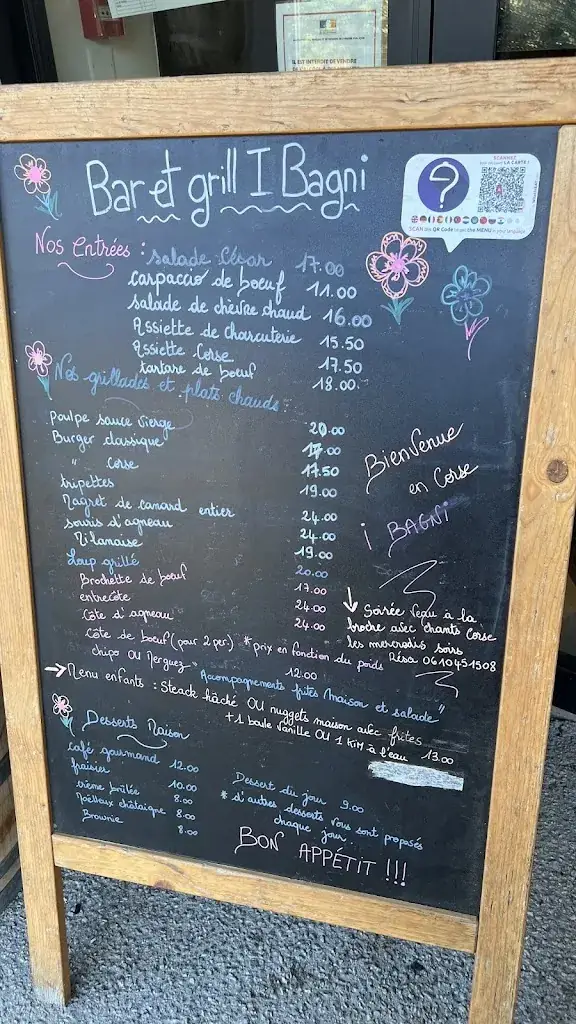 IL EST INTERDIT DE VENDRE
Bar et grill I Bagni
SCANNEZ
LA CARTE !
SCAN the QR Code to get the MENU in your language
Nos Entrées : salade César 17.00
carpaccio de boeuf 11.00
salade de chèvre chaud 16.00
Assiette de charcuterie 15.50
Assiette Corse 17.50
tartare de boeuf 18.00
Nos grillades et plats chauds :
Poulpe sauce vierge 20.00
Burger classique 17.00
" Corse 17.50
tripettes 19.00
Magret de canard entier 24.00
souris d'agneau 24.00
Milanaise 19.00
Loup grillé 20.00
Brochette de boeuf 17.00
entrecôte 24.00
Côte d'agneau 24.00
Côte de boeuf (pour 2 per.) * prix en fonction du poids
chipo OU Merguez 12.00
"Accompagnements frites Maison et salade"
Bienvenue
en Corse
i BAGNI
↓ Soirée veau à la
broche avec chants Corse
les mercredis soirs
Résa 0610451508
→ Menu enfants : Steack hâché OU nuggets maison avec frites
+ 1 boule Vanille OU 1 KIM à l'eau 13.00
Desserts Maison
café gourmand 12.00
fraisier 10.00
crème brûlée 8.00
Moëlleux châtaigne 8.00
Brownie 8.00
Dessert du jour 9.00
* d'autres desserts vous sont proposés
chaque jour...
BON APPÉTIT !!!